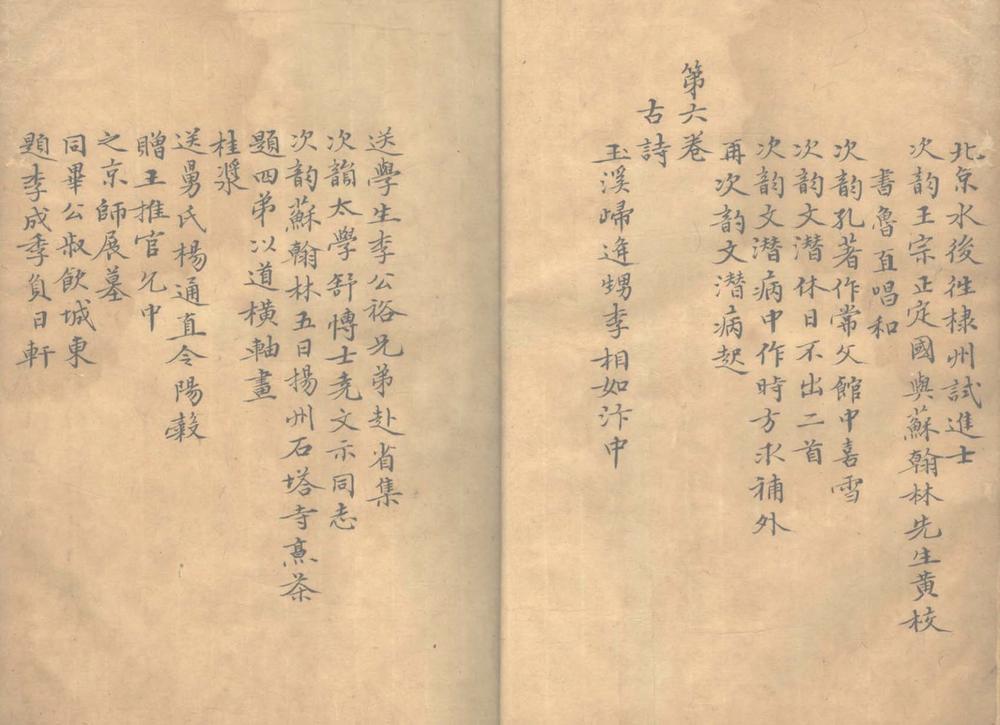 北京水後往棣州試進士
次韵王宗正定國與蘇翰林先生黄校
書魯直唱和
次韵孔著作常父館中喜雪
次韵文潜休日不出二首
次韵文潜病中作時方求補外
再次韵文潜病起
第六卷
古詩
玉溪歸逄甥李相如汴中
送學生李公裕兄弟赴省集
次韻太學舒愽士尭文示同志
次韵蘇翰林五日揚州石塔寺烹茶
題四弟以道横軸畫
桂漿
送舅氏楊通直令陽穀
贈王推官允中
之京師展墓
同畢公叔飲城東
題李成季負日軒